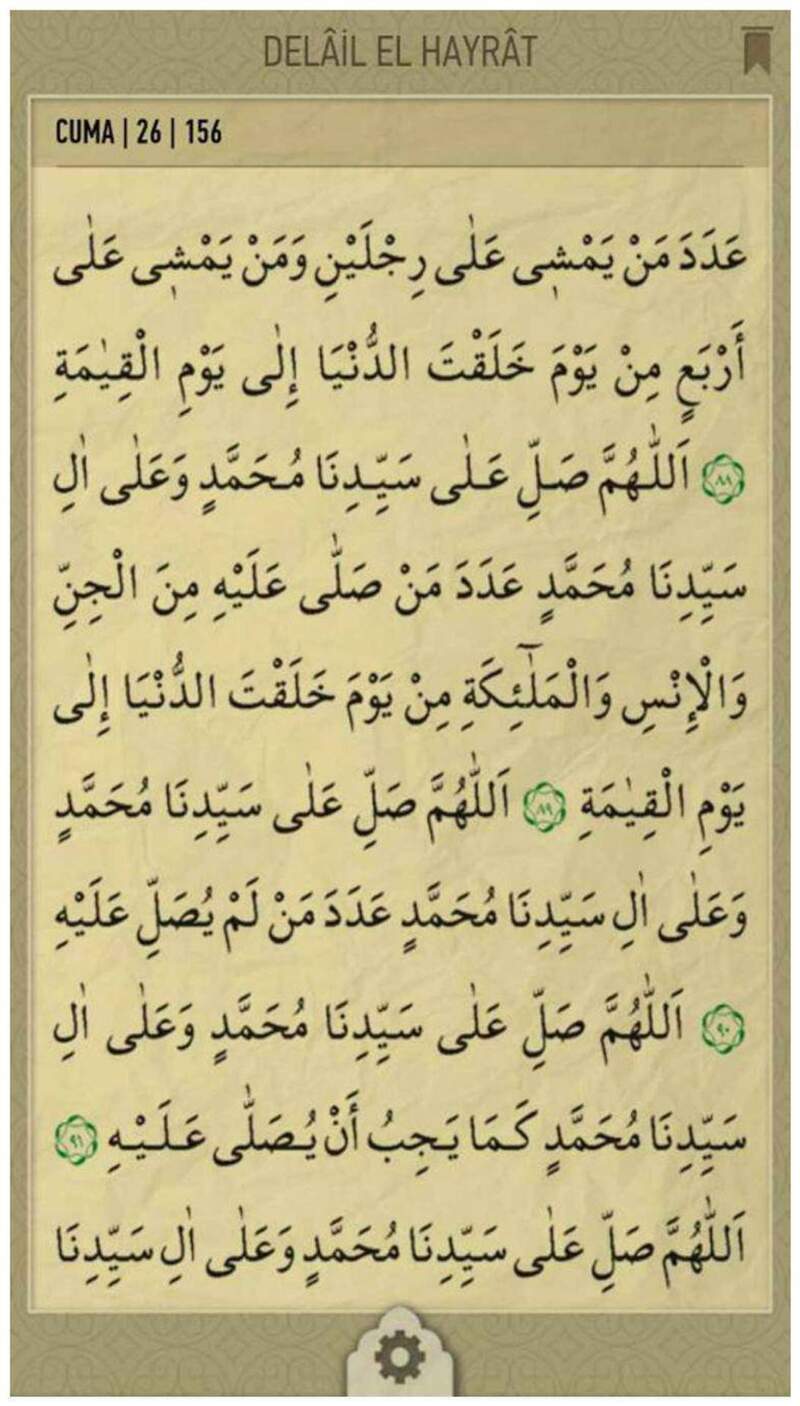 DELÂİL EL HAYRÂT
CUMA | 26 | 156
عَدَدَ مَنْ يَمْشٖى عَلٰى رِجْلَيْنِ وَمَنْ يَمْشٖى عَلٰى
أَرْبَعٍ مِنْ يَوْمَ خَلَقْتَ الدُّنْيَا إِلٰى يَوْمِ الْقِيٰمَةِ
﴿٨٨﴾ اَللّٰهُمَّ صَلِّ عَلٰى سَيِّدِنَا مُحَمَّدٍ وَعَلٰى اٰلِ
سَيِّدِنَا مُحَمَّدٍ عَدَدَ مَنْ صَلّٰى عَلَيْهِ مِنَ الْجِنِّ
وَالْإِنْسِ وَالْمَلٰٓئِكَةِ مِنْ يَوْمَ خَلَقْتَ الدُّنْيَا إِلٰى
يَوْمِ الْقِيٰمَةِ ﴿٨٩﴾ اَللّٰهُمَّ صَلِّ عَلٰى سَيِّدِنَا مُحَمَّدٍ
وَعَلٰى اٰلِ سَيِّدِنَا مُحَمَّدٍ عَدَدَ مَنْ لَمْ يُصَلِّ عَلَيْهِ
﴿٩٠﴾ اَللّٰهُمَّ صَلِّ عَلٰى سَيِّدِنَا مُحَمَّدٍ وَعَلٰى اٰلِ
سَيِّدِنَا مُحَمَّدٍ كَمَا يَجِبُ أَنْ يُصَلّٰى عَلَيْهِ ﴿٩١﴾
اَللّٰهُمَّ صَلِّ عَلٰى سَيِّدِنَا مُحَمَّدٍ وَعَلٰى اٰلِ سَيِّدِنَا